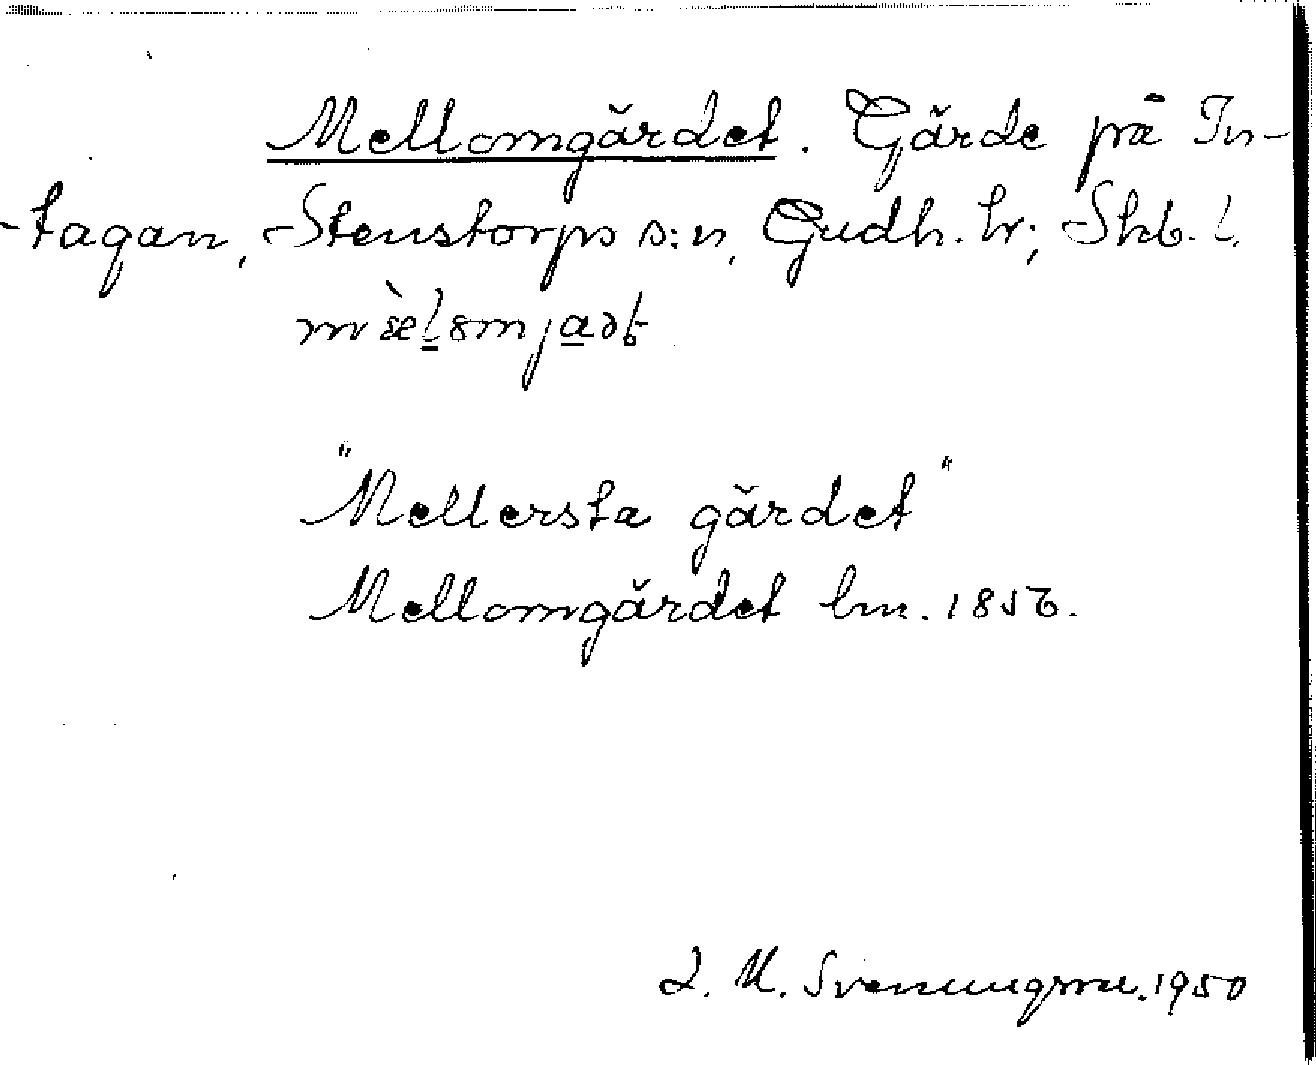 Mellomgärdet. Gärde på In-
-tagan, Stenstorps s:n, Gudh. hr; Skb. l.
"Mellersta gärdet"
Mellomgärdet hm. 1856.
Svenungsson. 1950